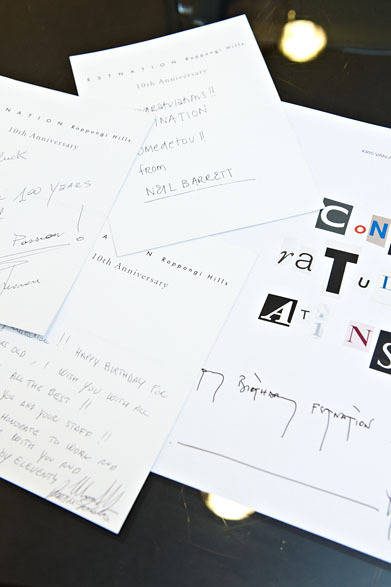 ESTNATION Roppongi Hills
10th Anniversary
NATION
omedetou!!
from
NEIL BARRETT
NATION Roppongi Hills
10th Anniversary
100 YEARS
Passion!
Roppongi Hills
10th Anniversary
!! HAPPY BIRTHDAY FOR
OLD, I WISH YOU WITH ALL
ALL THE BEST!!
YOU AND YOUR STAFF!!
TO WORK AND
WITH YOU AND
KRIS VAN A
CON
raTUL
ATiNS
BIRTHDAY ESTNATION